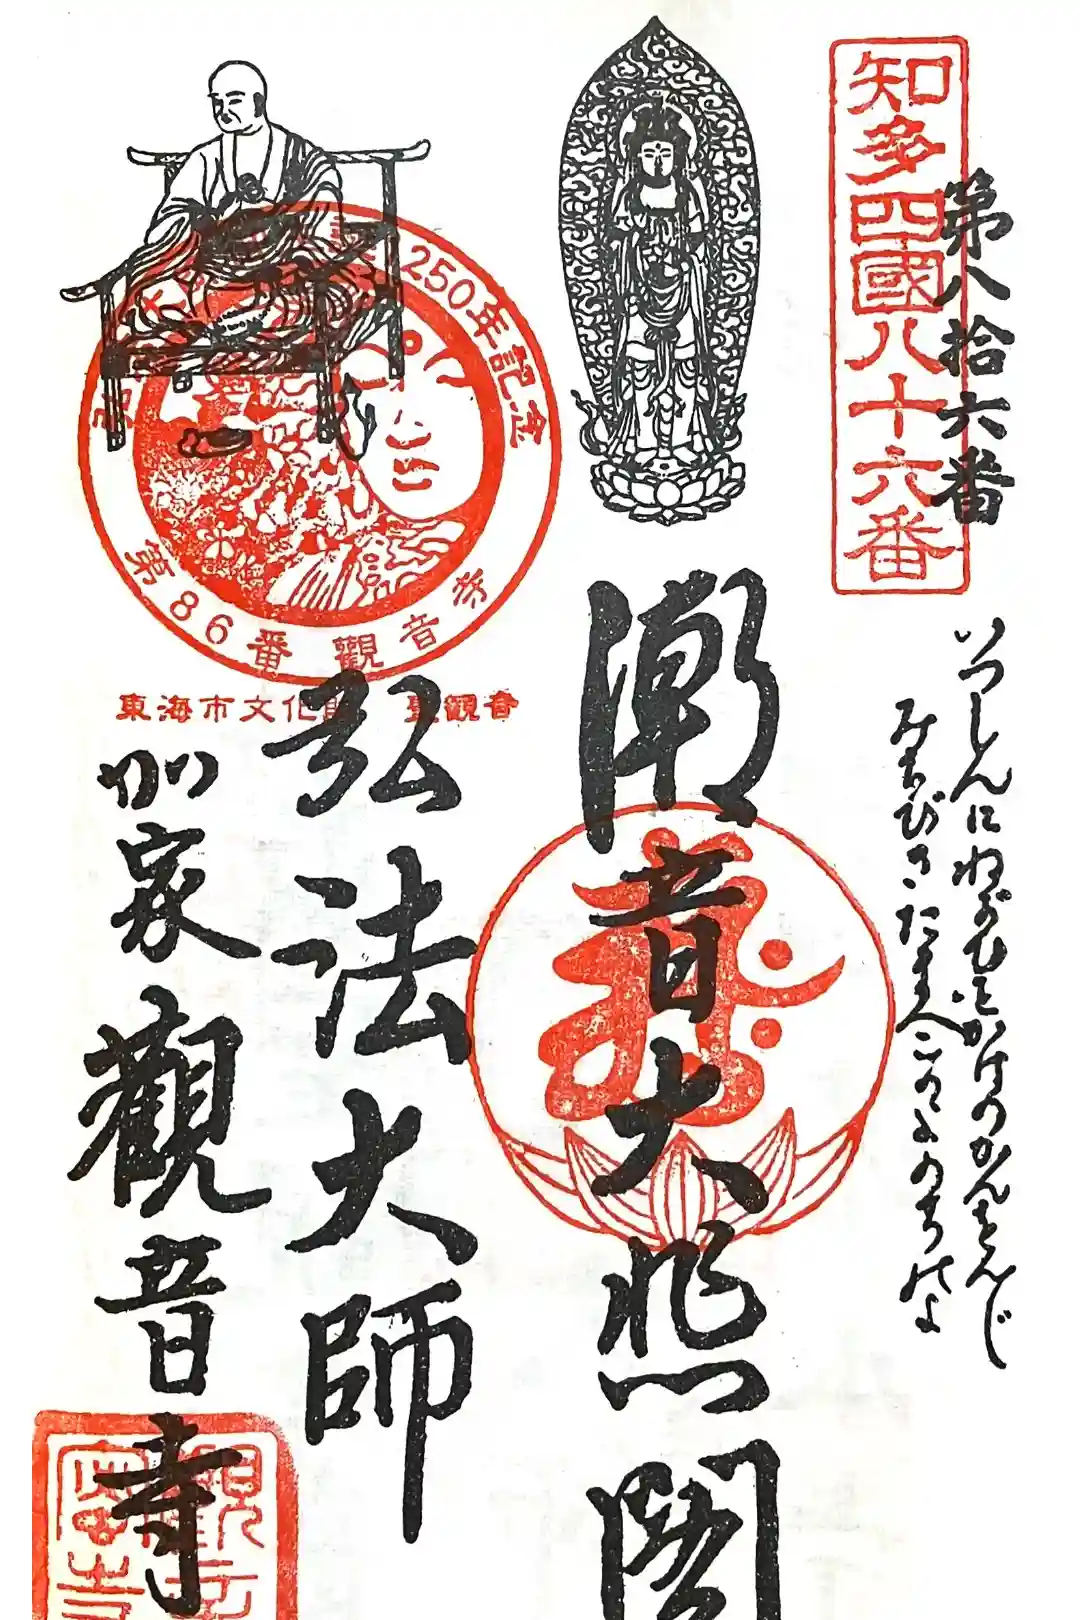 知多四國八十六番
第八拾六番
いつしんにねがひをかけのかんをんじ
みちびきたまへこのよのちのよ
潮音大悲閣
弘法大師
加家觀音寺
250年記念
第86番觀音寺
東海市文化財 聖観音